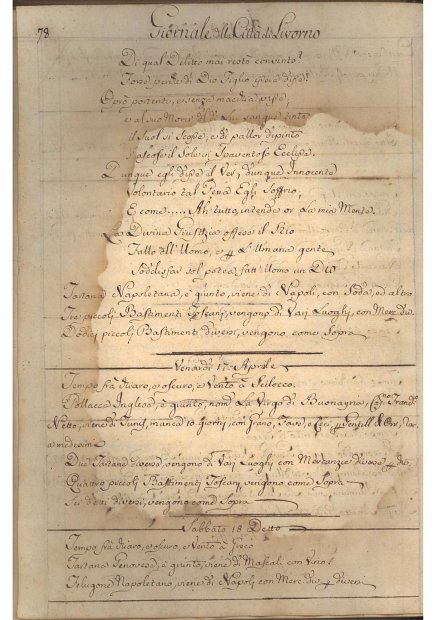 78
Giornale della Città di Livorno
Di qual Delitto mai restò convinto?
Forse perche di Dio Figlio disse?
Oprò portenti, e senza macchia visse,
e al suo Morir di Suo sangue tinto
il Suol si scosse, e di pallor dipinto
Nascose il Sole in spaventoso Ecclisse.
Dunque egli disse il Ver, dunque Innocente
Volontario tal Pena Egli soffrio,
E come.... Ah tutto, intende or la mia Mente.
La Divina Giustizia offese il Rio
Fallo all'Uomo, e l'Umana gente
Soddisfar sol potea fatt'Uomo un Dio
Tartana Napoletana, è giunto, viene di Napoli, con Soda, ed altro
Tre piccoli Bastimenti Toscani, vengono di Varj Luoghi, con Merc: div:
Dodici piccoli Bastimenti diversi, vengono come Sopra
Venardi 17 Aprile
Tempo frà chiaro, e oscuro, e Vento à Scilocco.
Pollacca Inglese, è giunto, nom: La Virgo di Buonayna, Cap:no
Netto, viene di Tunis, manca 10 giorni, con Grano, Fave, e Ceci
a medesimi
Due Tartane diverse, vengono di Varj Luoghi con Mercanzie diverse
Quattro piccoli Bastimenti Toscani, vengono come Sopra
Sei detti diversi, vengono come Sopra
Sabbato 18 Detto
Tempo frà chiaro, e oscuro, e Vento à Greco
Tartana Genovese, è giunto, viene di Mascali con Vino
Filugone Napoletano, viene di Napoli con Merc: div: diversi